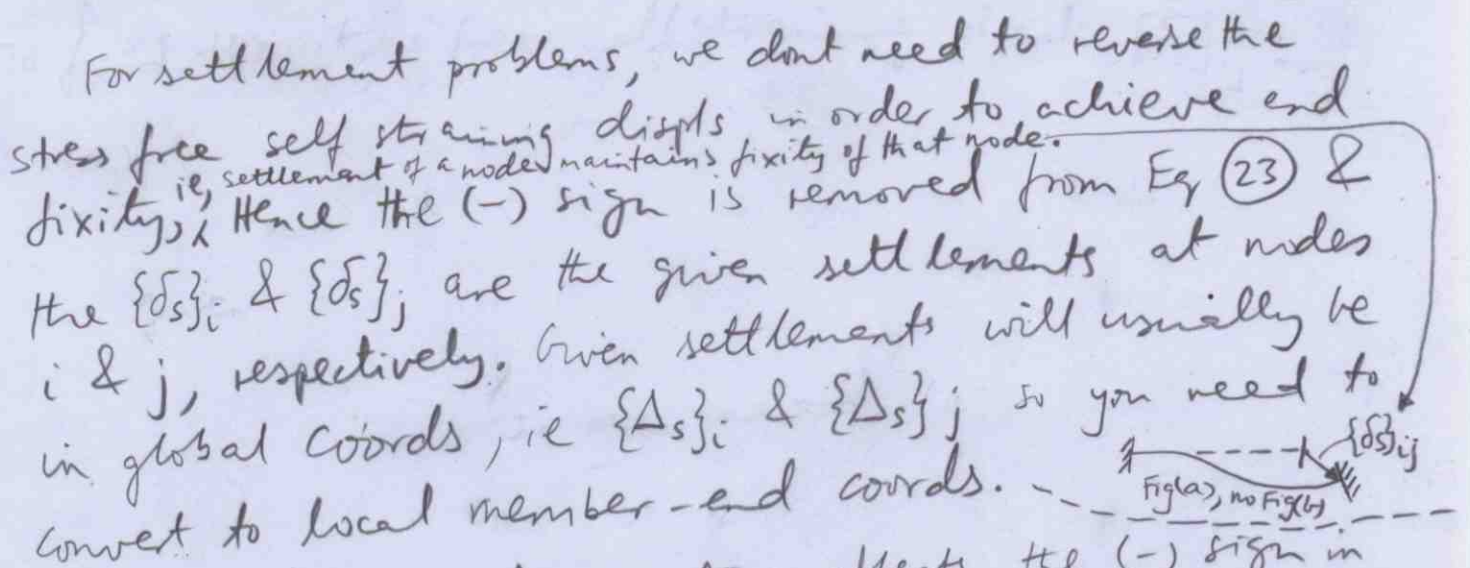 For settlement problems, we dont need to reverse the
stress free self straining displs in order to achieve end
ie, settlement of a node maintains fixity of that node.
fixity, Hence the (-) sign is removed from Eq (23) &
the {δs}i & {δs}j are the given settlements at nodes
i & j, respectively. Given settlements will usually be
in global coords, ie {Δs}i & {Δs}j so you need to
{δs}ij
convert to local member-end coords.
Fig(a), no Fig(b)
the (-) sign in